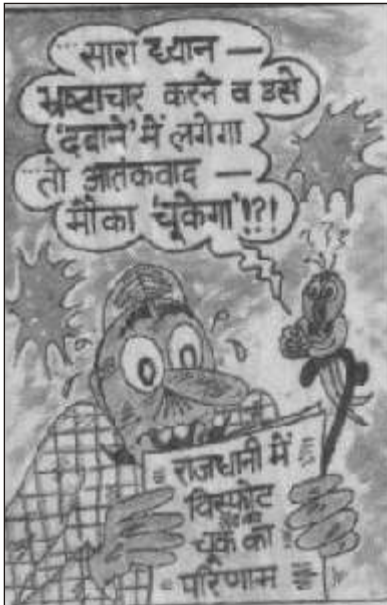 ...सारा ध्यान —
भ्रष्टाचार करने व उसे
'दबाने' में लगेगा
...तो आतंकवाद —
मौका 'चूकेगा'!?!
राजधानी में
विस्फोट
चूक का
परिणाम